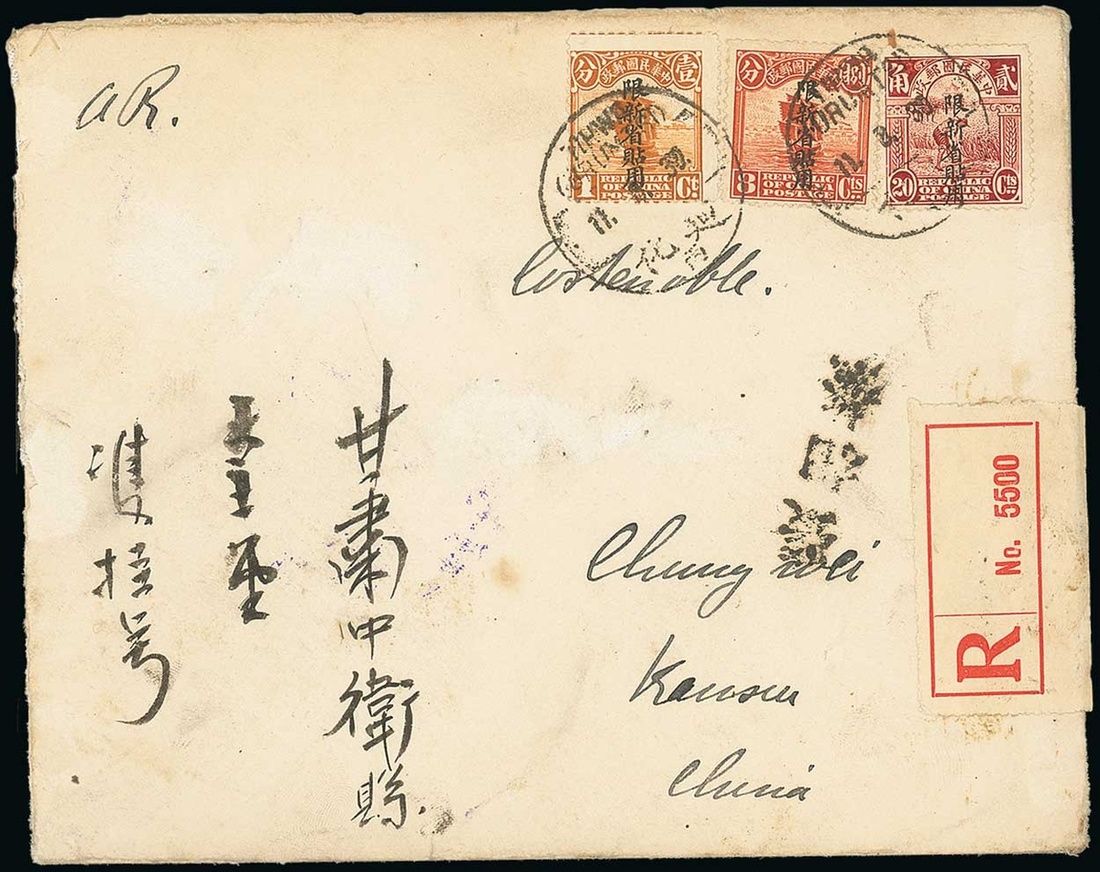 AR.
壹 中華民國郵政 分
限新省貼用
1 REPUBLIC OF CHINA POSTAGE Ct
捌 中華民國郵政 分
限新省貼用
8 REPUBLIC OF CHINA POSTAGE Cts
貳 中華民國郵政 角
限新省貼用
20 REPUBLIC OF CHINA POSTAGE Cts
TIHWAFU
11. 8. 30
迪化
Costenoble.
Chung wei
Kansu
China
R No. 5500
甘肅中衛縣
雙挂号